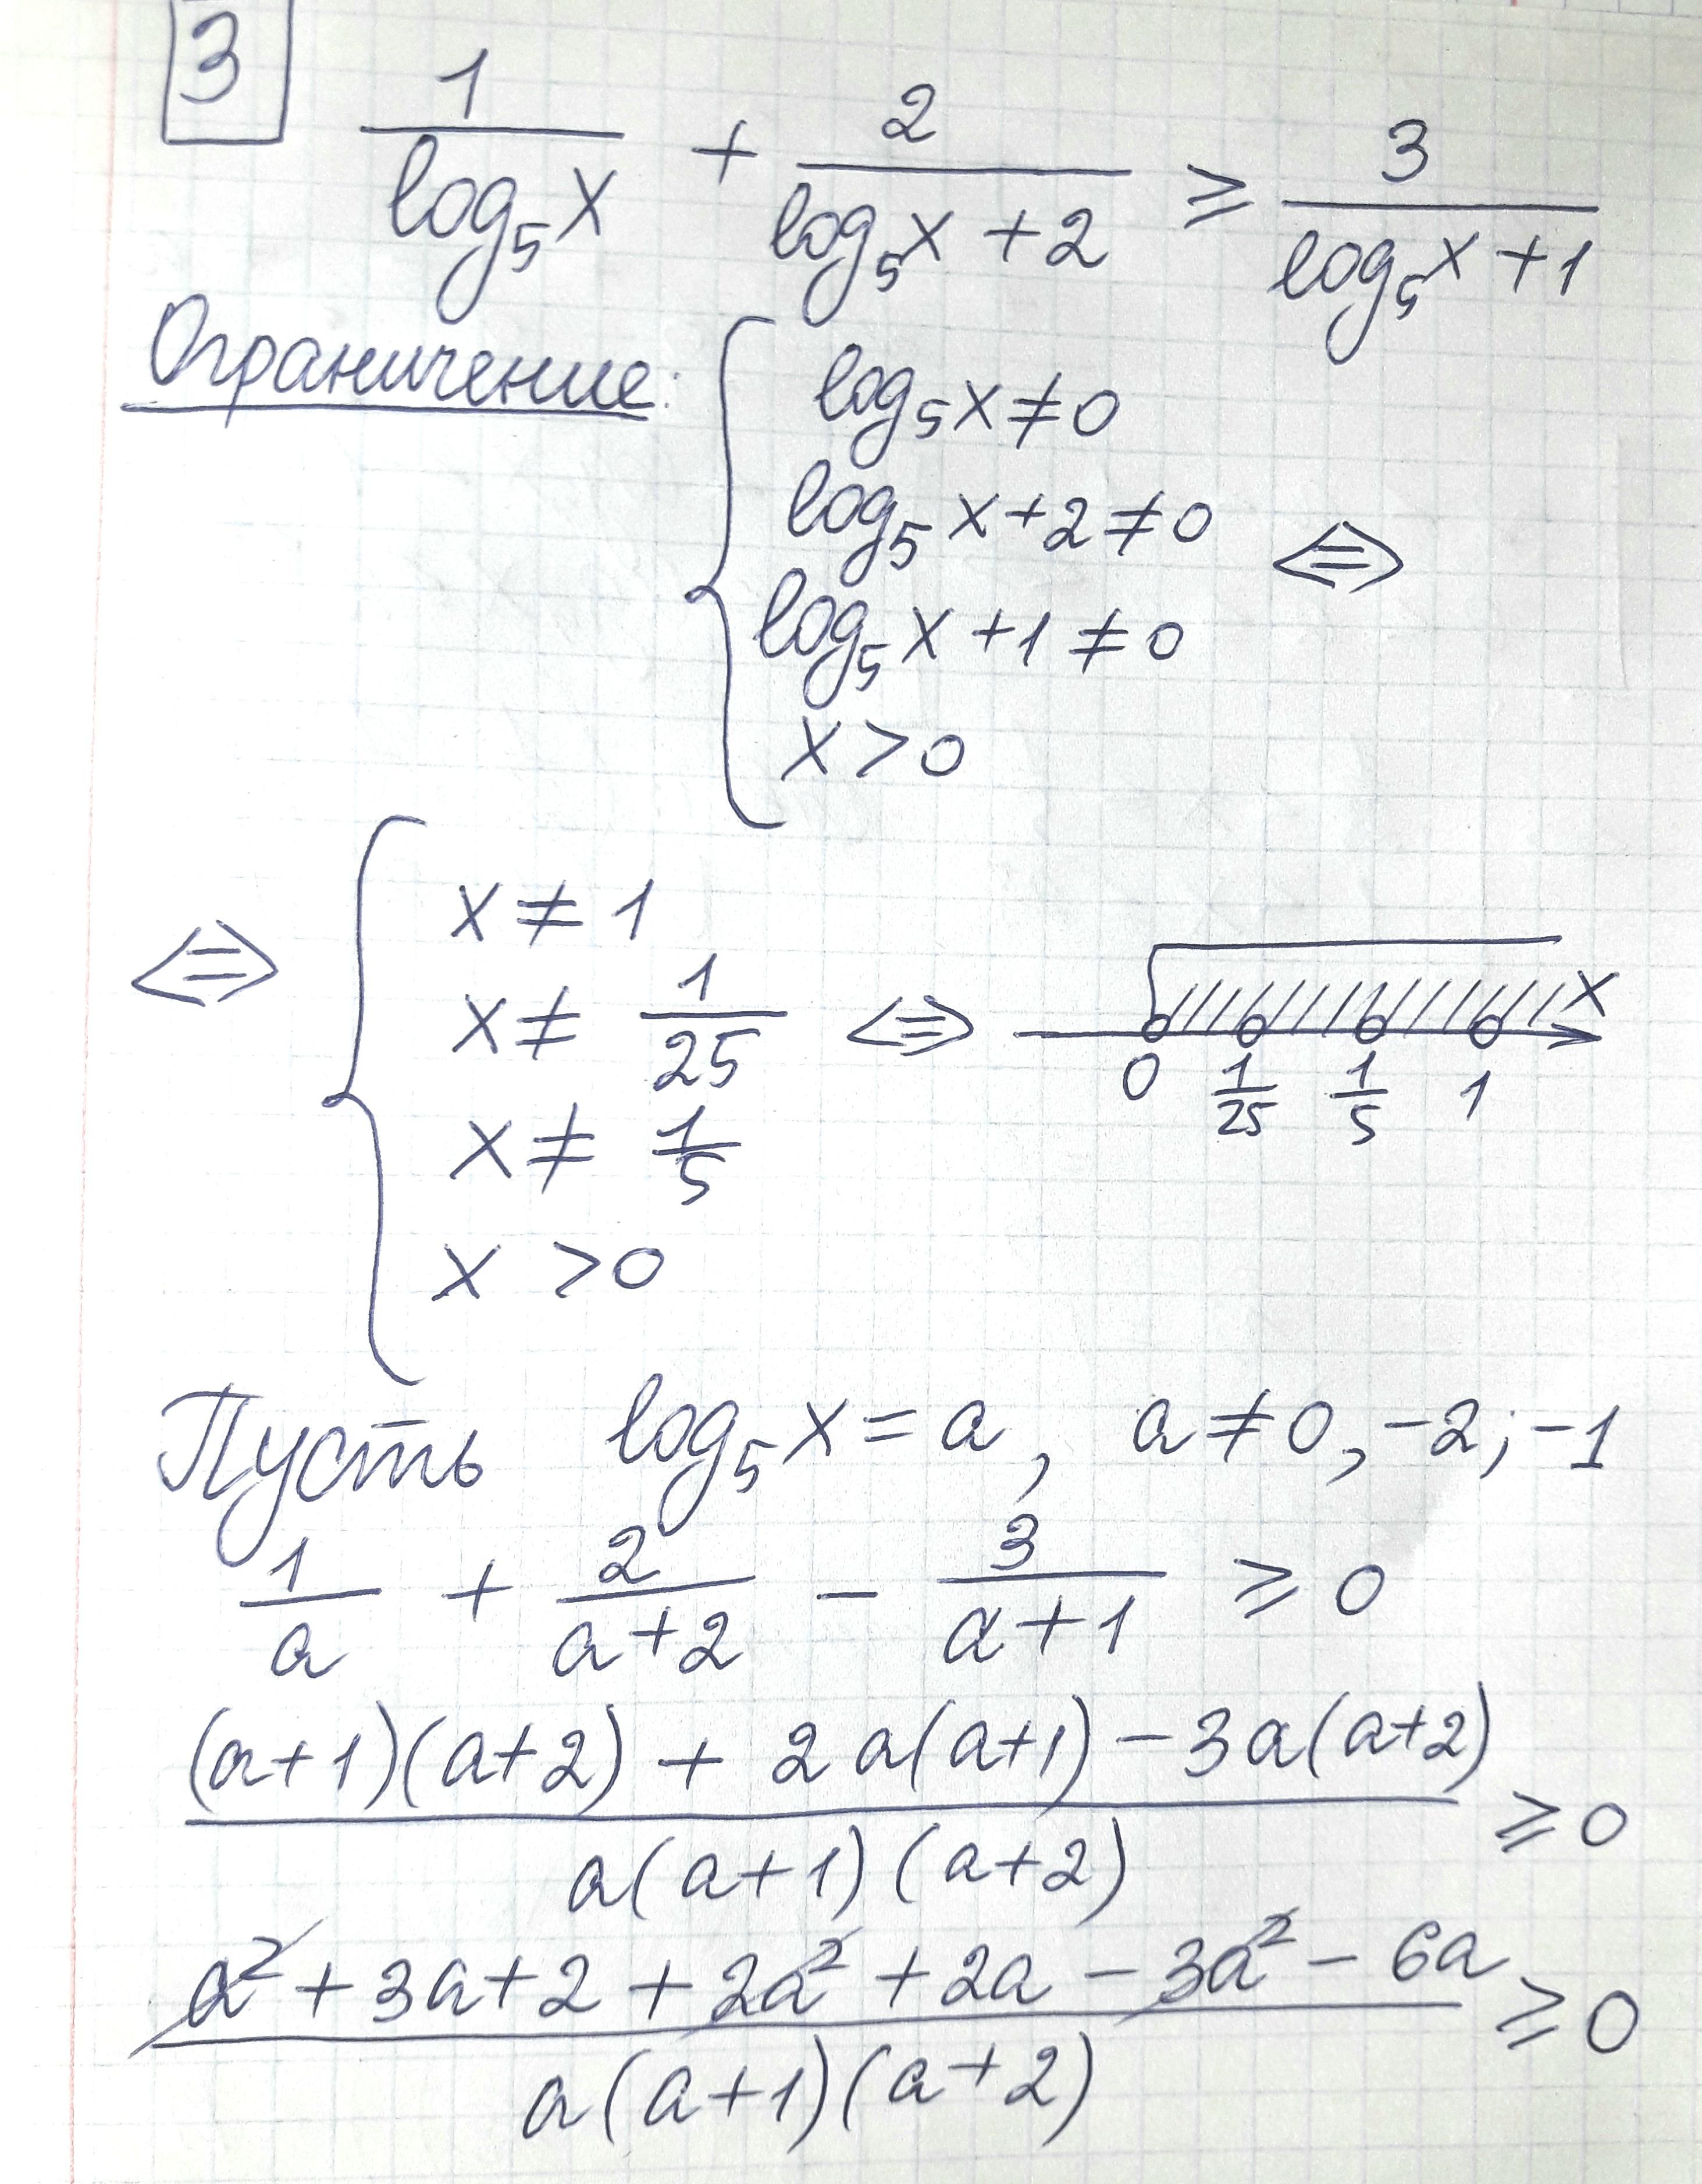 3
1/log₅x + 2/(log₅x + 2) ≥ 3/(log₅x + 1)
Ограничение:
{ log₅x ≠ 0
log₅x + 2 ≠ 0 ⇔
log₅x + 1 ≠ 0
x > 0
⇔ { x ≠ 1
x ≠ 1/25 ⇔
x ≠ 1/5
x > 0
x
0 1/25 1/5 1
Пусть log₅x = a, a ≠ 0, -2; -1
1/a + 2/(a+2) - 3/(a+1) ≥ 0
((a+1)(a+2) + 2a(a+1) - 3a(a+2))/(a(a+1)(a+2)) ≥ 0
(a² + 3a + 2 + 2a² + 2a - 3a² - 6a)/(a(a+1)(a+2)) ≥ 0